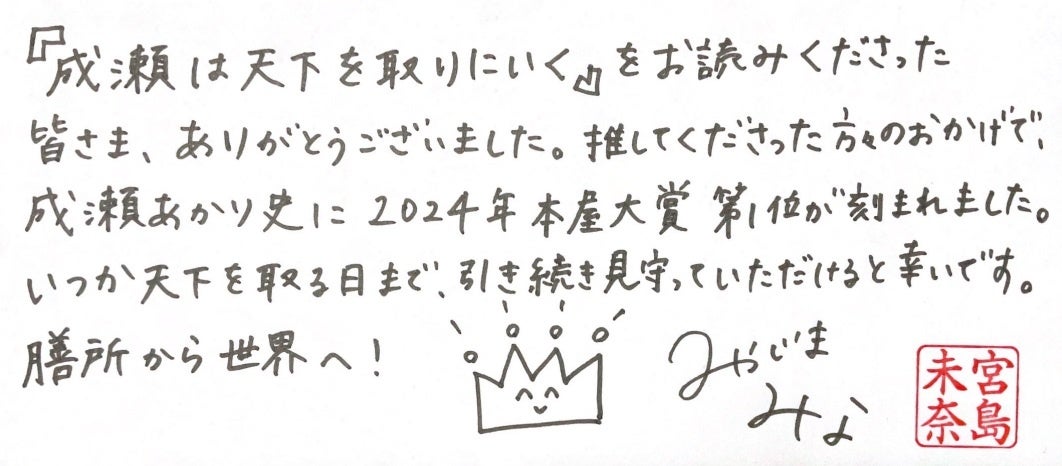 『成瀬は天下を取りにいく』をお読みくださった
皆さま、ありがとうございました。推してくださった方々のおかげで、
成瀬あかり史に2024年本屋大賞第1位が刻まれました。
いつか天下を取る日まで、引き続き見守っていただけると幸いです。
膳所から世界へ！
みやじま
みな
宮島
未奈